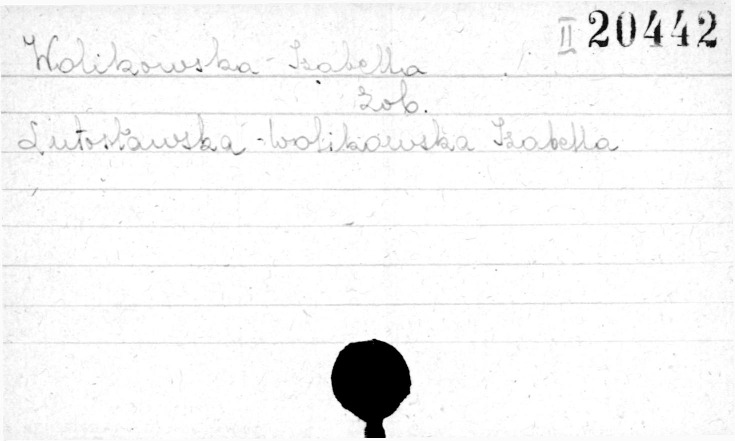 II 20442
Wolikowska - Izabella
Zob.
Lutosławska - Wolikowska Izabella